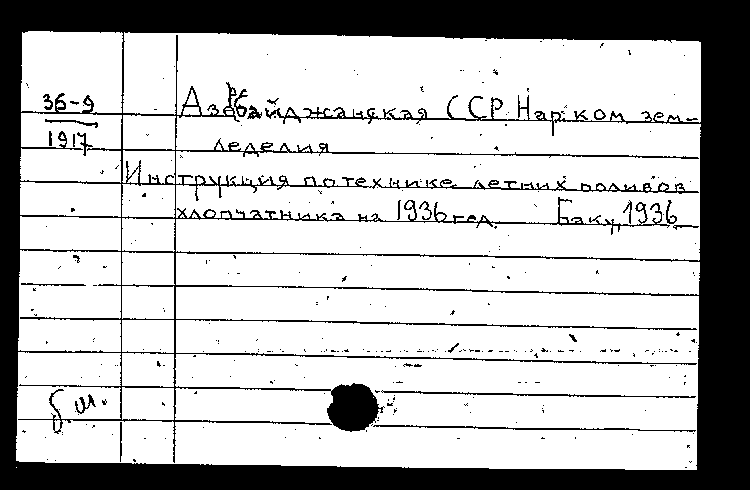 36-9
1917
Азербайджанская ССР. Нар. ком. зем-
леделия
Инструкция по технике летних поливов
хлопчатника на 1936 год. Баку, 1936